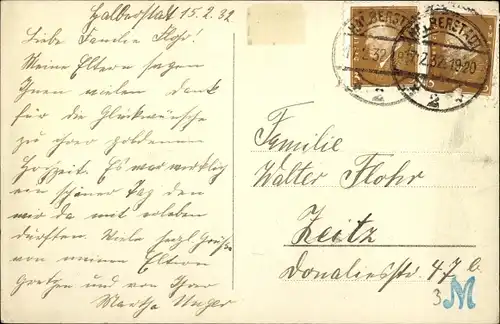 Halberstadt 15.2.32
Liebe Familie Flohr!
Meine Eltern sagen
Ihnen vielen Dank
für die Glückwünsche
zu ihrer goldenen
Hochzeit. Es war wirklich
ein schöner Tag den
wir da mit erleben
durften. Viele herzl. Grüße
von meinen Eltern
Gretchen und von Ihrer
Martha Unger
HALBERSTADT
2
HALBERSTADT
2.32.19-20
2
Familie
Walter Flohr
Zeitz
Donaliesstr. 47b
3 M